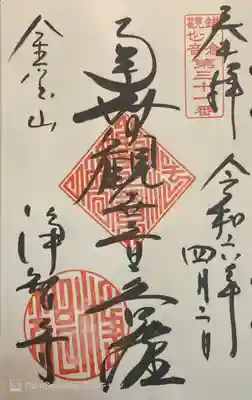 奉拝
鎌倉
観世音第三十一番
令和六年
四月二日
聖観世音菩薩
金宝山
浄智寺